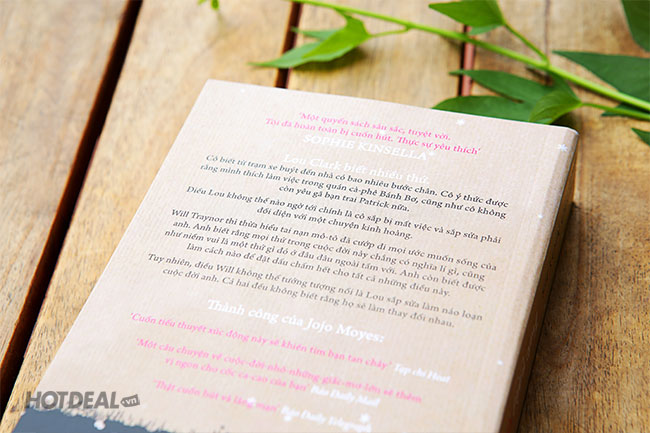 'Một quyển sách sâu sắc, tuyệt vời.
Tôi đã hoàn toàn bị cuốn hút. Thực sự yêu thích'
SOPHIE KINSELLA
Lou Clark biết nhiều thứ.
Cô biết từ trạm xe buýt đến nhà có bao nhiêu bước chân. Cô ý thức được
rằng mình thích làm việc trong quán cà-phê Bánh Bơ, cũng như cô không
còn yêu gã bạn trai Patrick nữa.
Điều Lou không thể nào ngờ tới chính là cô sắp bị mất việc và sắp sửa phải
đối diện với một chuyện kinh hoàng.
Will Traynor thì thừa hiểu tai nạn mô-tô đã cướp đi mọi ước muốn sống của
anh. Anh biết rằng mọi thứ trong cuộc đời này chẳng có nghĩa lí gì, cũng
như niềm vui là một thứ gì đó ở đâu đâu ngoài tầm với. Anh còn biết được
làm cách nào để đặt dấu chấm hết cho tất cả những điều này.
Tuy nhiên, điều Will không thể tưởng tượng nổi là Lou sắp sửa làm náo loạn
cuộc đời anh. Cả hai đều không biết rằng họ sẽ làm thay đổi nhau.
Thành công của Jojo Moyes:
'Cuốn tiểu thuyết xúc động này sẽ khiến tim bạn tan chảy' Tạp chí Heat
'Một câu chuyện về cuộc đời nhỏ những giấc mơ lớn sẽ thêm
vị ngon cho cốc ca-cao của bạn' Báo Daily Mail
'Thật cuốn hút và lãng mạn' Báo Daily Telegraph
HOTDEAL.vn